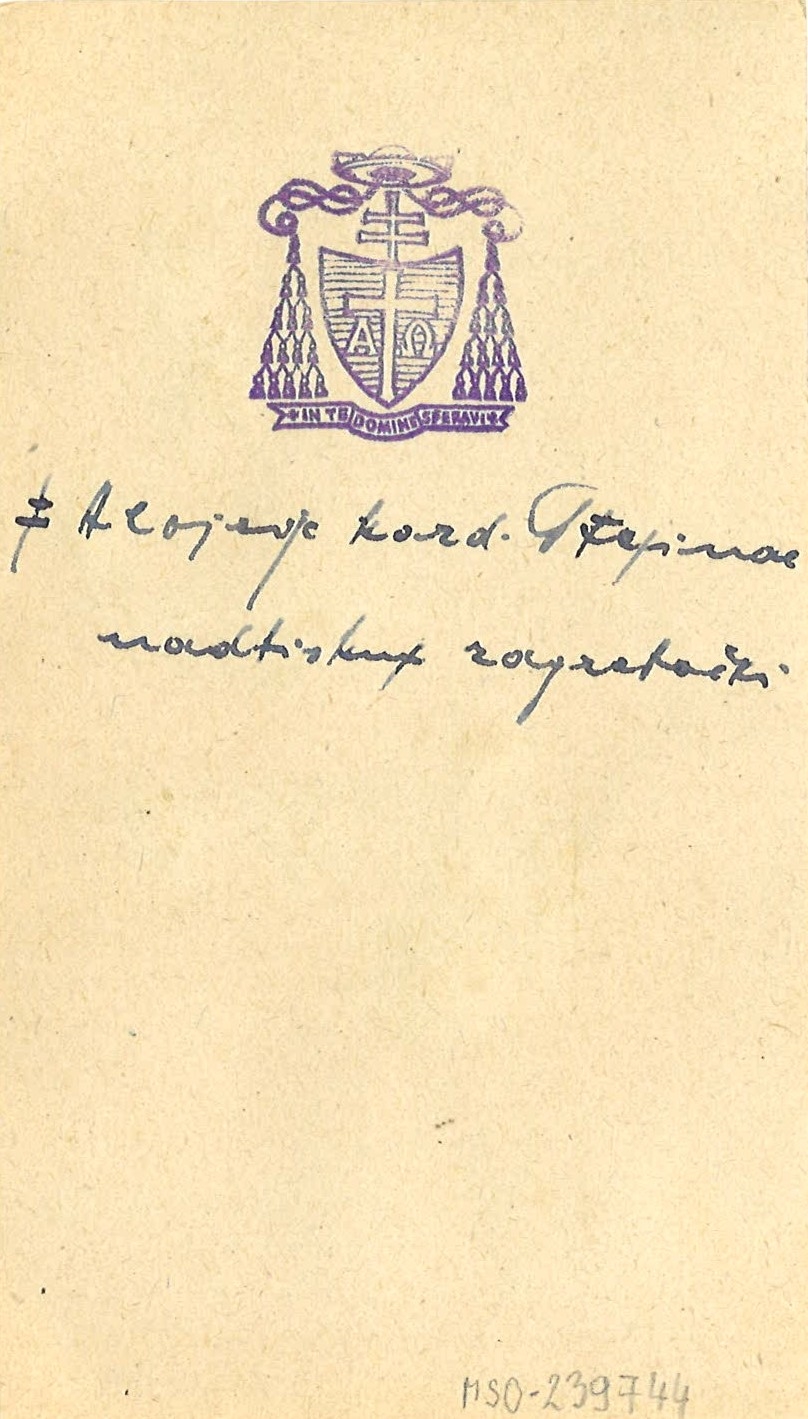 Α Ω
✦ IN TE DOMINE SPERAVI ✦
‡ Alojzije kard. Stepinac
nadbiskup zagrebački
MSO-239744